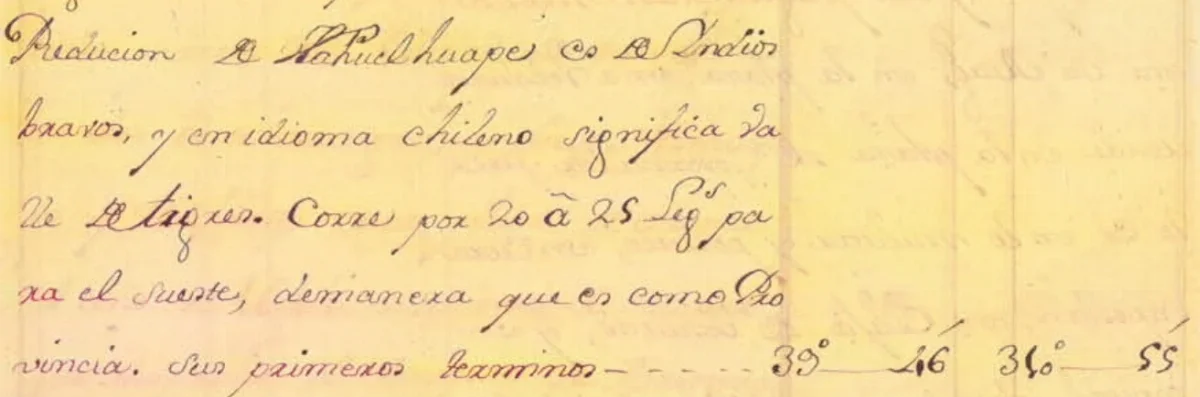 Reducion de Nahuelhuape es de Indios
bravos, y en idioma chileno significa Va
lle de tigres. Corre por 20 â 25 Leg.s pa
ra el sueste, demanera que es como Pro
vincia. Sus primeros terminos - - - - - 39° 46' 310° 55'